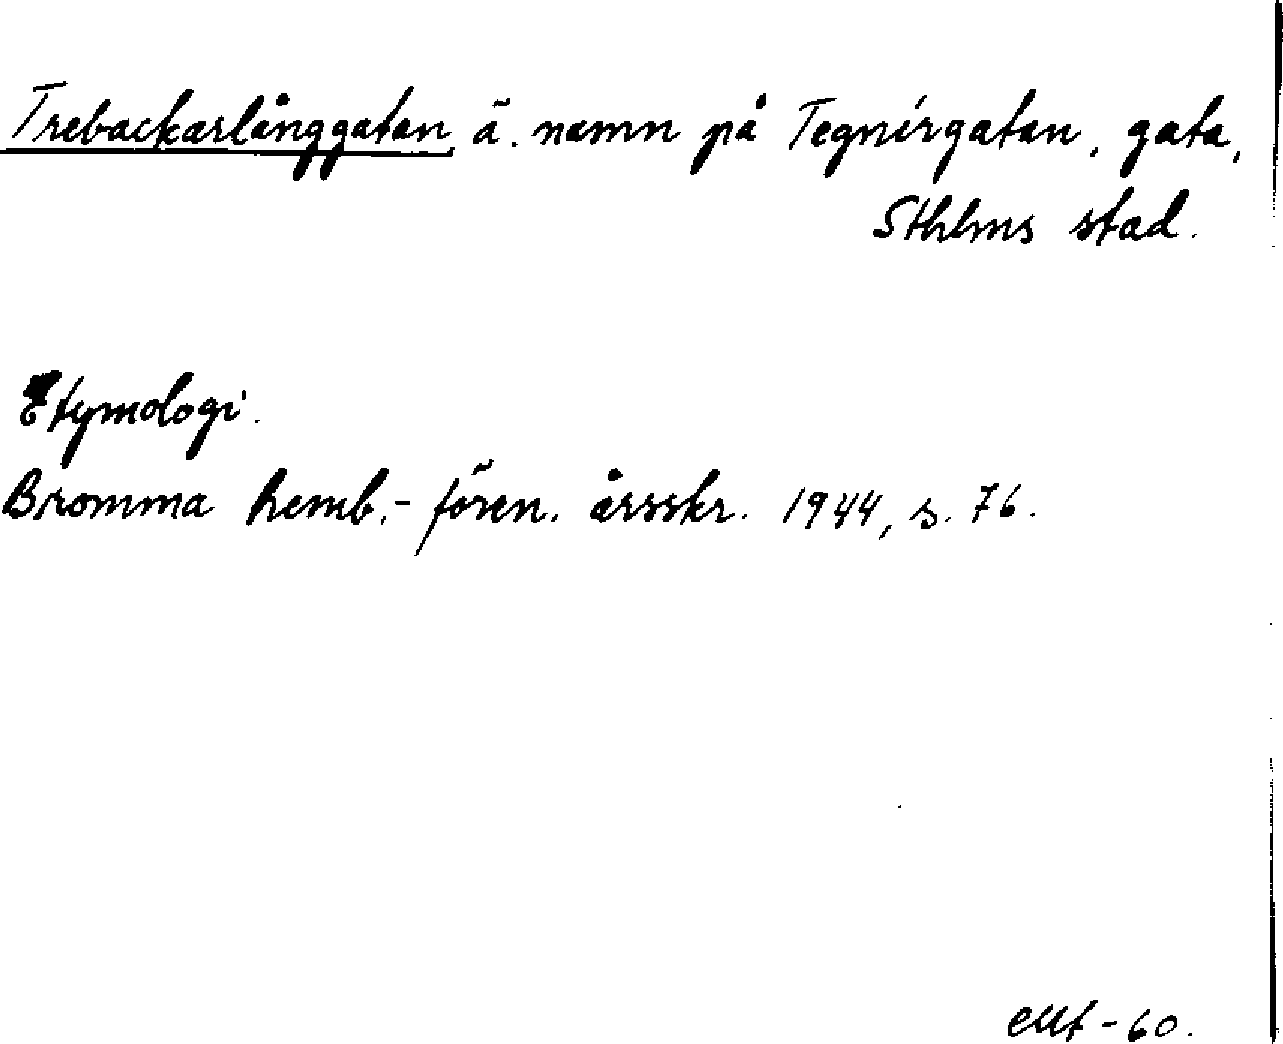 Trebackarlånggatan, ä. namn på Tegnérgatan, gata,
Sthlms stad.
Etymologi.
Bromma hemb.-fören. årsskr. 1944, s. 76.
-60.